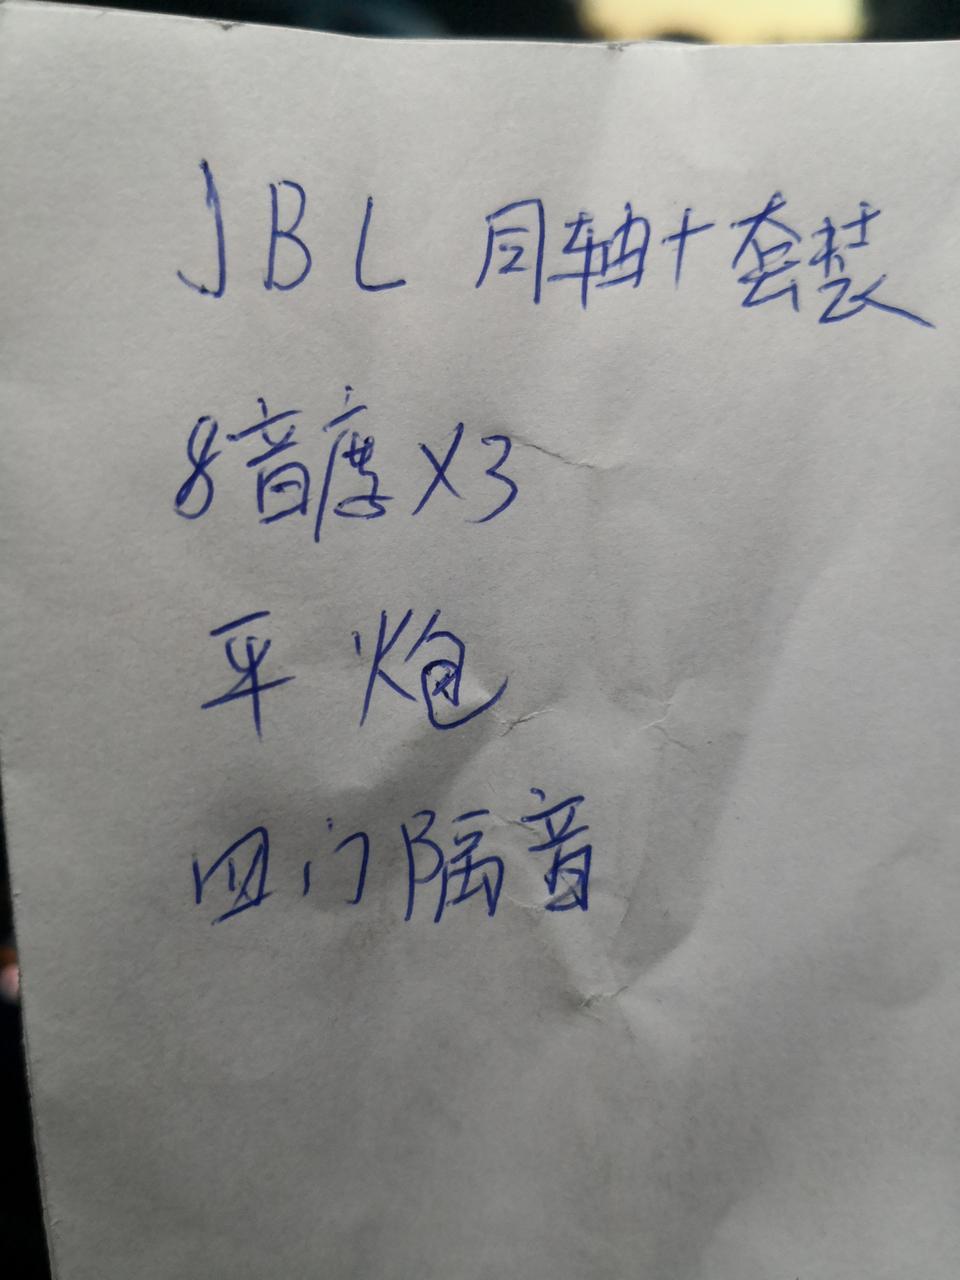 JBL 同轴+套装
8音度X3
平炮
四门隔音